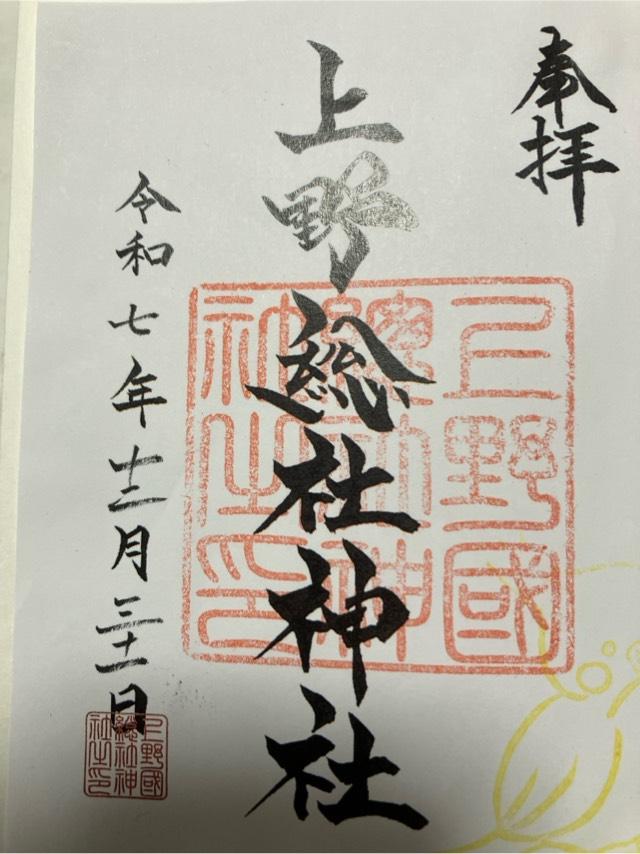 奉拝
上野総社神社
上野國
總社神
社之印
令和七年十二月三十一日
上野國
總社神
社之印